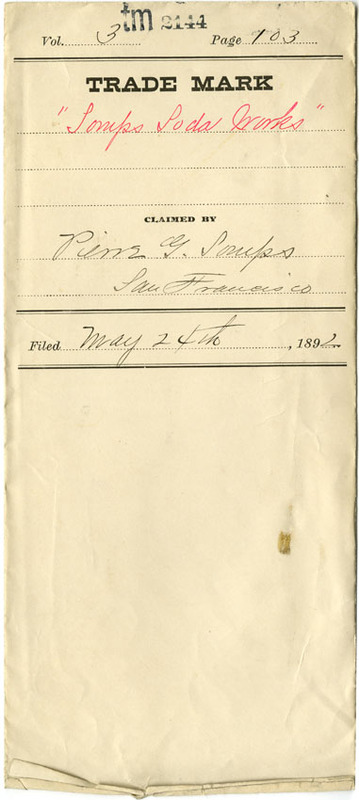 tm 2144
Vol. 3 Page 703
TRADE MARK
"Somps Soda Works"
CLAIMED BY
Pierre G. Somps
San Francisco
Filed May 24th, 1892